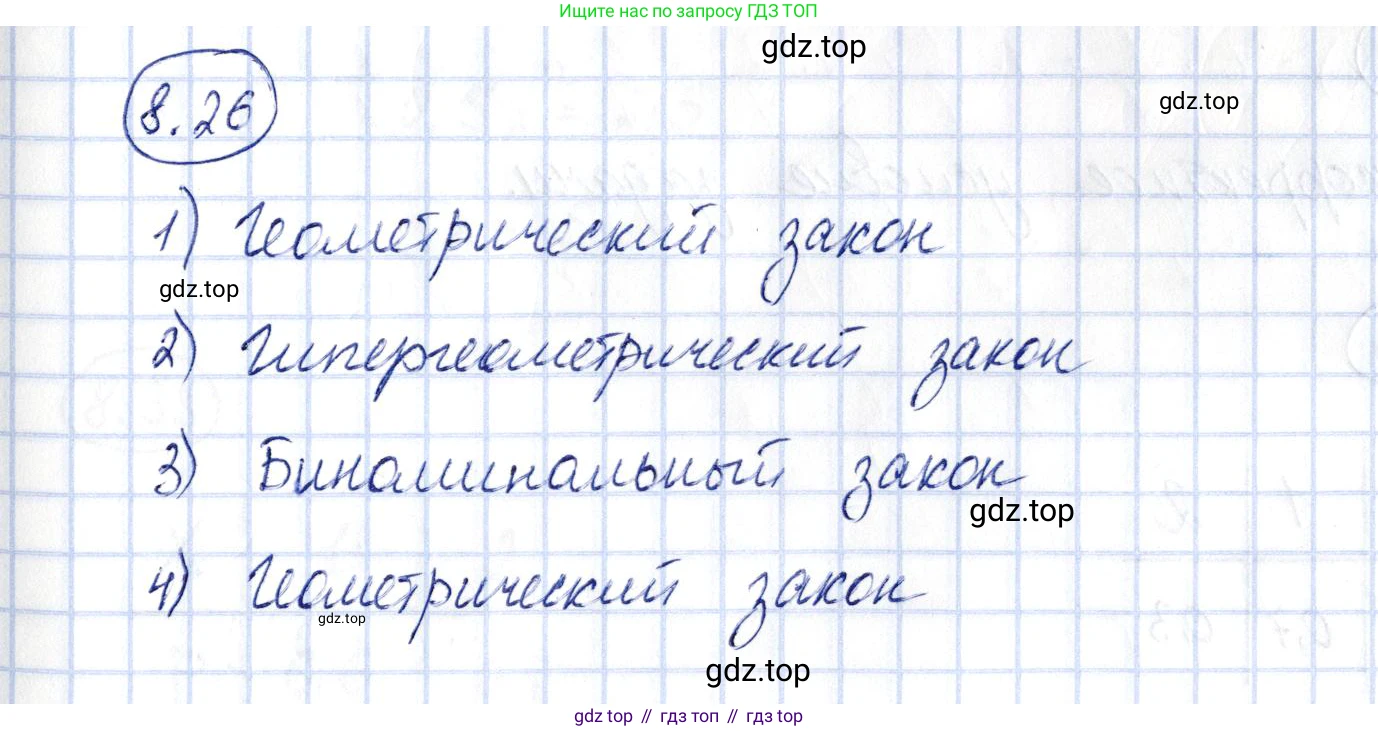 Ищите нас по запросу ГДЗ ТОП
gdz.top
8.26
gdz.top
1) Геометрический закон
gdz.top
2) Гипергеометрический закон
3) Биноминальный закон
gdz.top
4) Геометрический закон
gdz.top
gdz.top
gdz top // гдз топ // гдз top